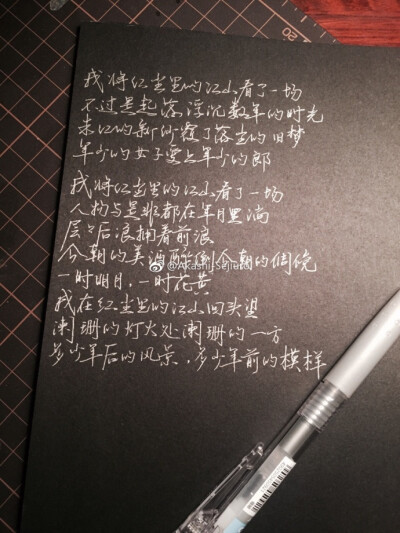 我将红尘里的江山看了一场
不过是起落浮沉数年的时光
未江的新竹瘦了落尘的旧梦
年少的女子爱上年少的郎
我将红尘里的江山看了一场
人物与是非都在年月里淌
层々后浪拥着前浪
今朝的美酒醉倒今朝的倜傥
一时明月,一时花黄
我在红尘里的江山回头望
阑珊的灯火处阑珊的一方
多少年后的风景,多少年前的模样
@Akashi-Seijuro